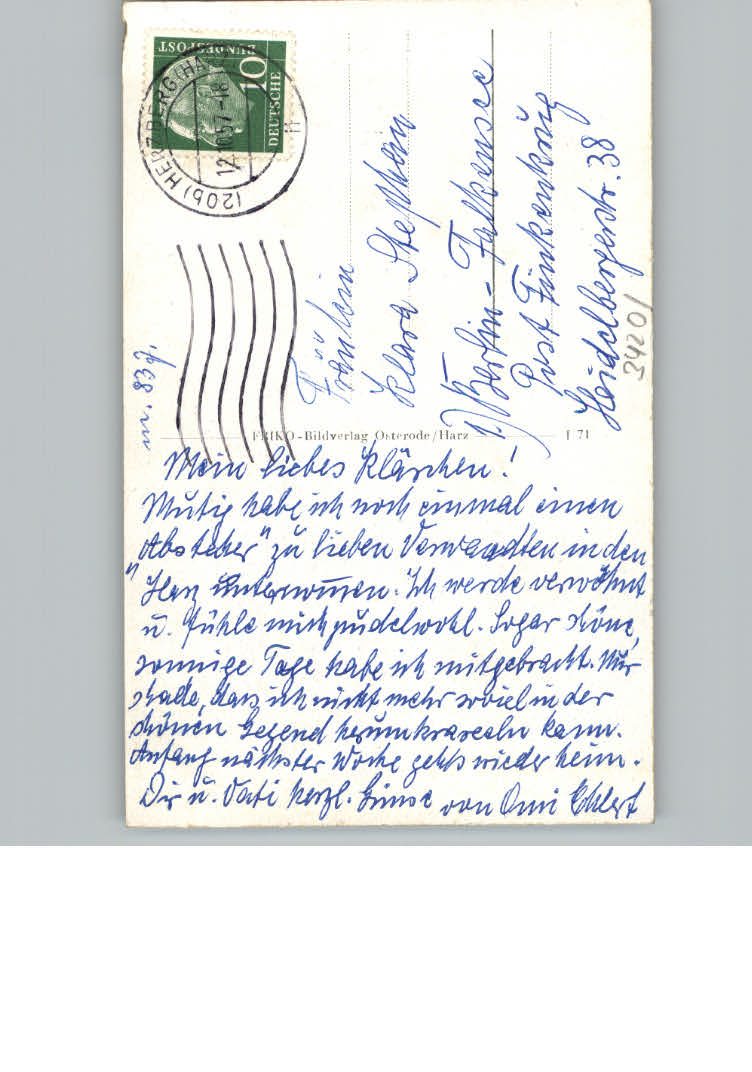 DEUTSCHE
BUNDESPOST
10
(20b) HERZBERG (HA
12.10.57-18
Fräulein
Klara Stephan
Berlin-Falkensee
Post Finkenkrug
Heidelbergerstr. 38
3420/
m. 83 J.
FRIKO-Bildverlag Osterode/Harz
I 71
Mein liebes Klärchen!
Mutig habe ich noch einmal einen
"Abstecher" zu lieben Verwandten in den
Harz unternommen. Ich werde verwöhnt
u. fühle mich pudelwohl. Sogar schöne,
sonnige Tage habe ich mitgebracht. Nur
schade, dass ich nicht mehr soviel in der
schönen Gegend herumkraxeln kann.
Anfang nächster Woche gehts wieder heim.
Dir u. Vati herzl. Grüsse von Omi Ehlert